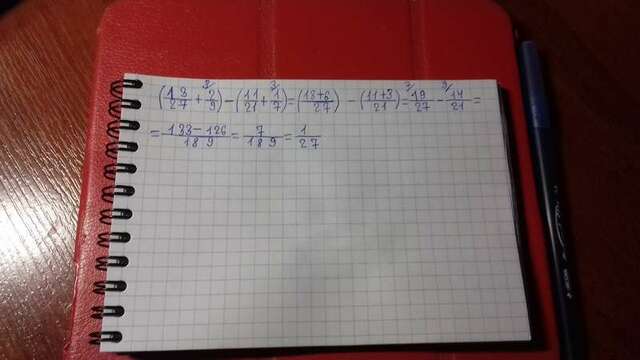 (13/27 + 2/9) - (11/21 + 1/7) = (13+6/27) - (11+3/21) = 19/27 - 14/21 =
= 133-126/189 = 7/189 = 1/27